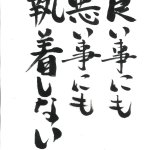 良い事にも
悪い事にも
執着しない